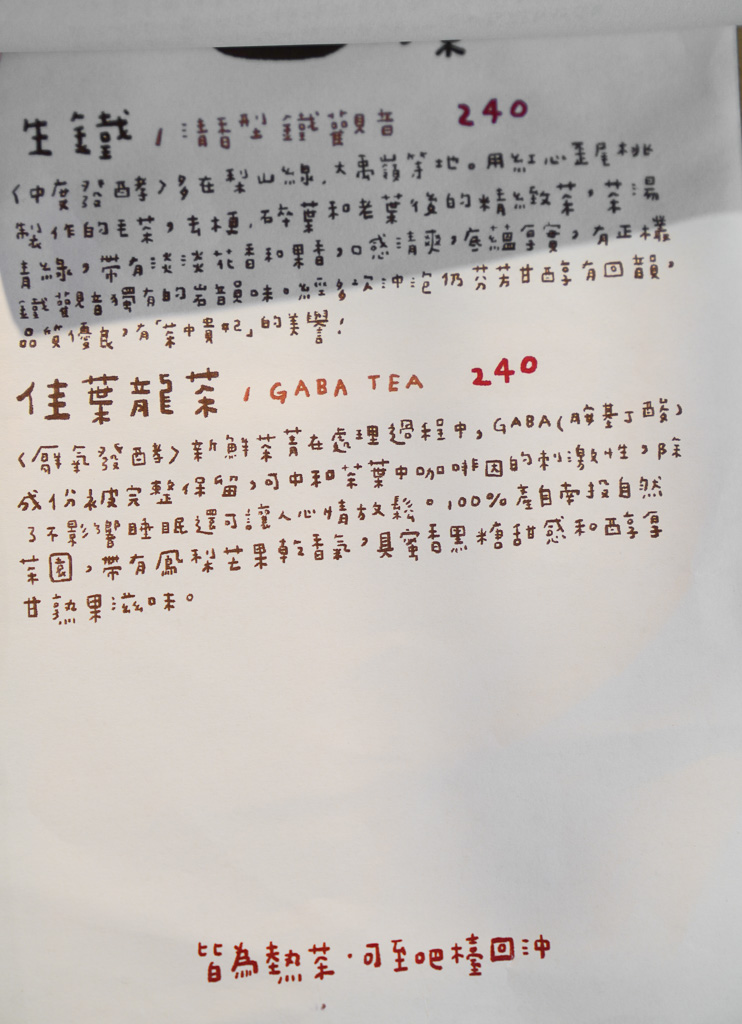 茶
生鐵 / 清香型 鐵觀音 240
〈中度發酵〉多在梨山線，大禹嶺等地。用紅心歪尾桃
製作的毛茶，去梗，碎葉和老葉後的精緻茶，茶湯
青綠，帶有淡淡花香和果香，口感清爽，底蘊厚實，有正欉
鐵觀音獨有的岩韻味。經多次沖泡仍芬芳甘醇有回韻，
品質優良，有「茶中貴妃」的美譽！
佳葉龍茶 / GABA TEA 240
〈厭氧發酵〉新鮮茶菁在處理過程中，GABA(胺基丁酸)
成份被完整保留，可中和茶葉中咖啡因的刺激性，除
了不影響睡眠還可讓人心情放鬆。100%產自南投自然
茶園，帶有鳳梨芒果乾香氣，具蜜香黑糖甜感和醇厚
甘熟果滋味。
皆為熱茶·可至吧檯回沖